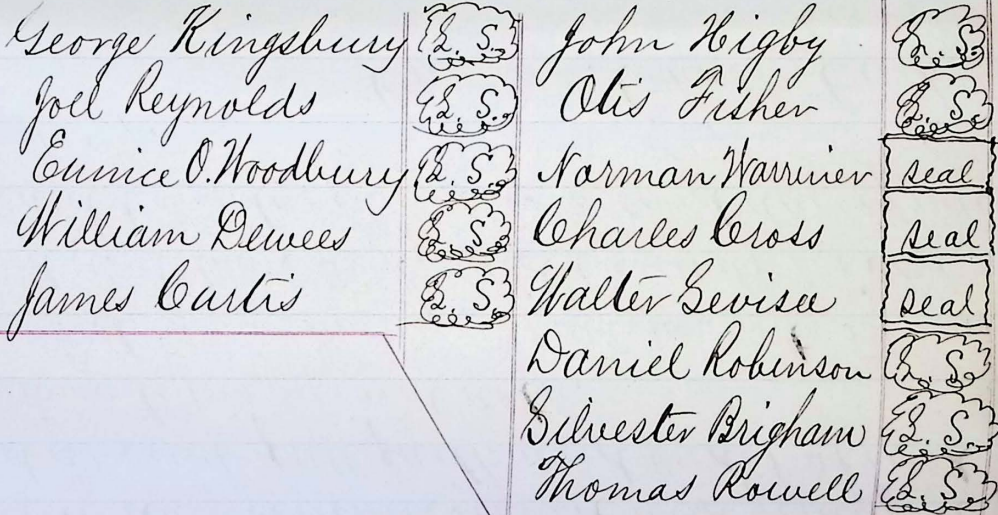 George Kingsbury L. S.
Joel Reynolds L. S.
Eunice O. Woodbury L. S.
William Dewees L. S.
James Curtis L. S.
John Higby L. S.
Otis Fisher L. S.
Norman Warriner seal
Charles Cross seal
Walter seal
Daniel Robinson L. S.
Silvester Brigham L. S.
Thomas Rowell L. S.